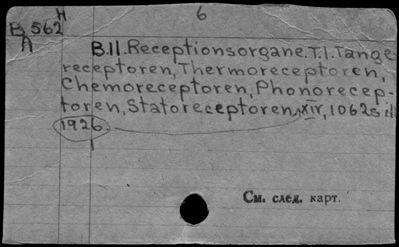 6
H
B 562
A
B.11. Receptionsorgane. T.1. Tange-
receptoren, Thermoreceptoren,
Chemoreceptoren, Phonorecep-
toren, Statoreceptoren, XIV, 1062S ill
1926
См. след. карт.